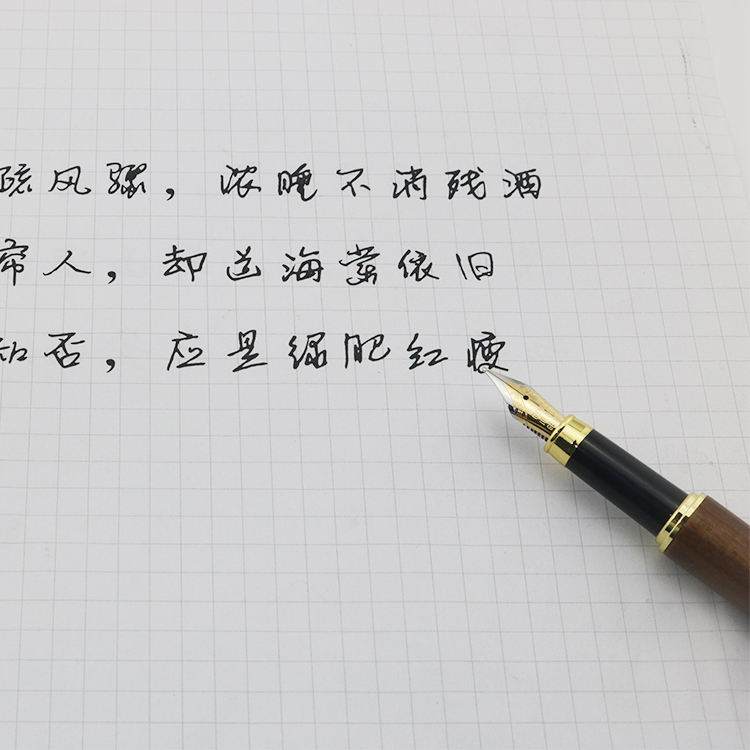 疏风骤，浓睡不消残酒
帘人，却道海棠依旧
知否，应是绿肥红瘦